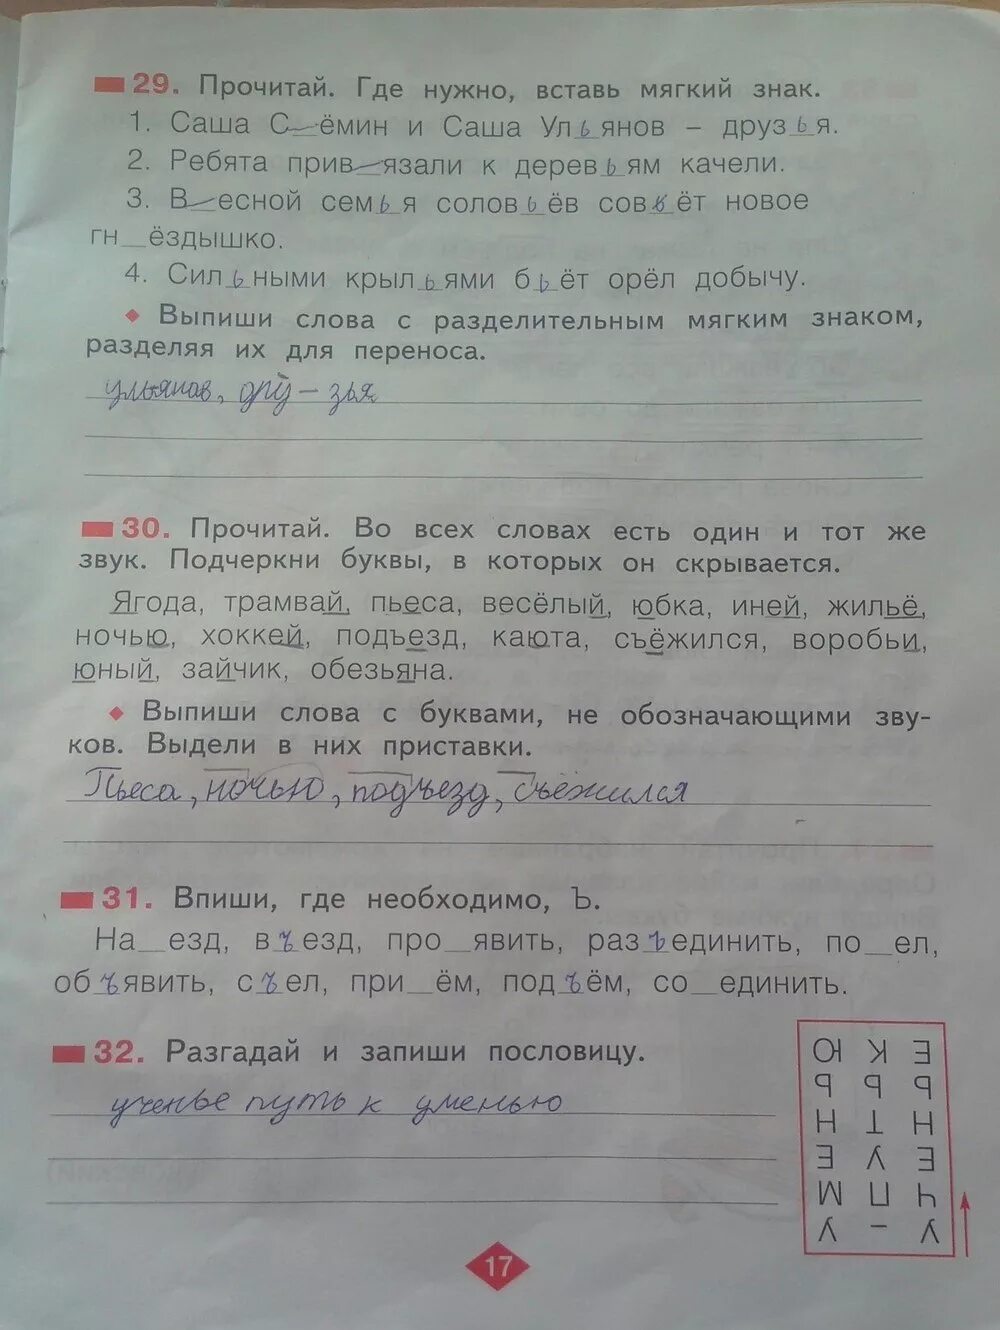 29. Прочитай. Где нужно, вставь мягкий знак.
1. Саша С_ёмин и Саша Ульянов – друзья.
2. Ребята прив_язали к деревьям качели.
3. В_есной семья соловьёв совьёт новое
гн_ёздышко.
4. Сильными крыльями бьёт орёл добычу.
Выпиши слова с разделительным мягким знаком,
разделяя их для переноса.
ульянов, дру – зья
30. Прочитай. Во всех словах есть один и тот же
звук. Подчеркни буквы, в которых он скрывается.
Ягода, трамвай, пьеса, весёлый, юбка, иней, жильё,
ночью, хоккей, подъезд, каюта, съёжился, воробьи,
юный, зайчик, обезьяна.
Выпиши слова с буквами, не обозначающими зву-
ков. Выдели в них приставки.
Пьеса, ночью, подъезд, съёжился
31. Впиши, где необходимо, Ъ.
На_езд, въезд, про_явить, разъединить, по_ел,
объявить, съел, при_ём, подъём, со_единить.
32. Разгадай и запиши пословицу.
ученье путь к уменью
У Ч Е Н Ь Е
– П У Т Ь К
У М Е Н Ь Ю
17